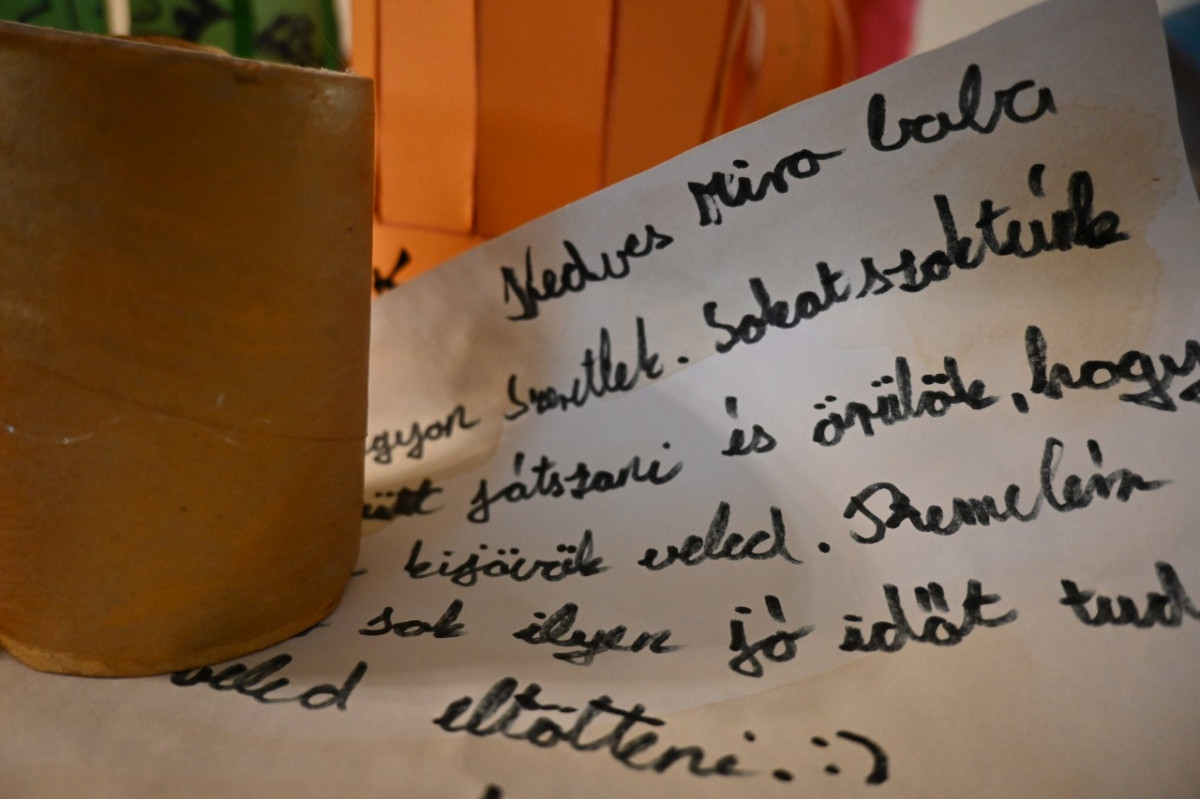 Kedves Mira baba
agyon szeretlek. Sokat szoktunk
ütt játszani és örülök, hogy
kijövök veled. Remélem
sok ilyen jó időt tud
veled eltölteni. :)